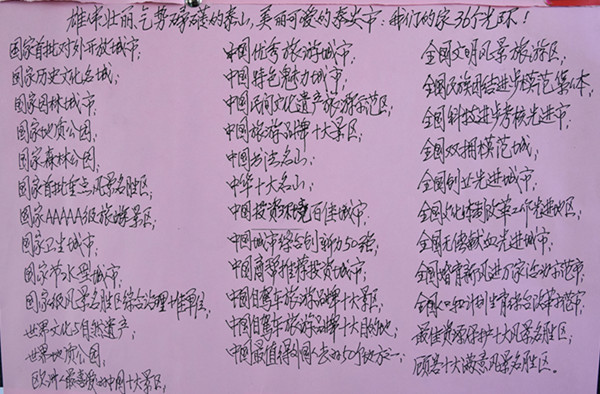 雄伟壮丽气势磅礴的泰山,美丽可爱的泰安市:我们的家36个光环!
国家首批对外开放城市;
国家历史文化名城;
国家园林城市;
国家地质公园;
国家森林公园;
国家首批重点风景名胜区;
国家AAAAA级旅游景区;
国家卫生城市;
国家节水型城市;
国家级风景名胜区综合治理十佳单位;
世界文化与自然遗产;
世界地质公园;
欧洲人最喜爱的中国十大景区;
中国优秀旅游城市;
中国特色魅力城市;
中国民间文化遗产旅游示范区;
中国旅游品牌十大景区;
中国书法名山;
中华十大名山;
中国投资环境百佳城市;
中国城市综合创新力50强;
中国商帮推荐投资城市;
中国自驾车旅游品牌十大景区;
中国自驾车旅游品牌十大目的地;
中国最值得外国人去的50个地方之一;
全国文明风景旅游区;
全国民族团结进步模范集体;
全国科技进步考核先进市;
全国双拥模范城;
全国创业先进城市;
全国文化体制改革工作先进地区;
全国无偿献血先进城市;
全国婚育新风进万家活动示范市;
全国人口和计划生育综合改革示范市;
最佳资源保护十大风景名胜区;
顾客十大满意风景名胜区。